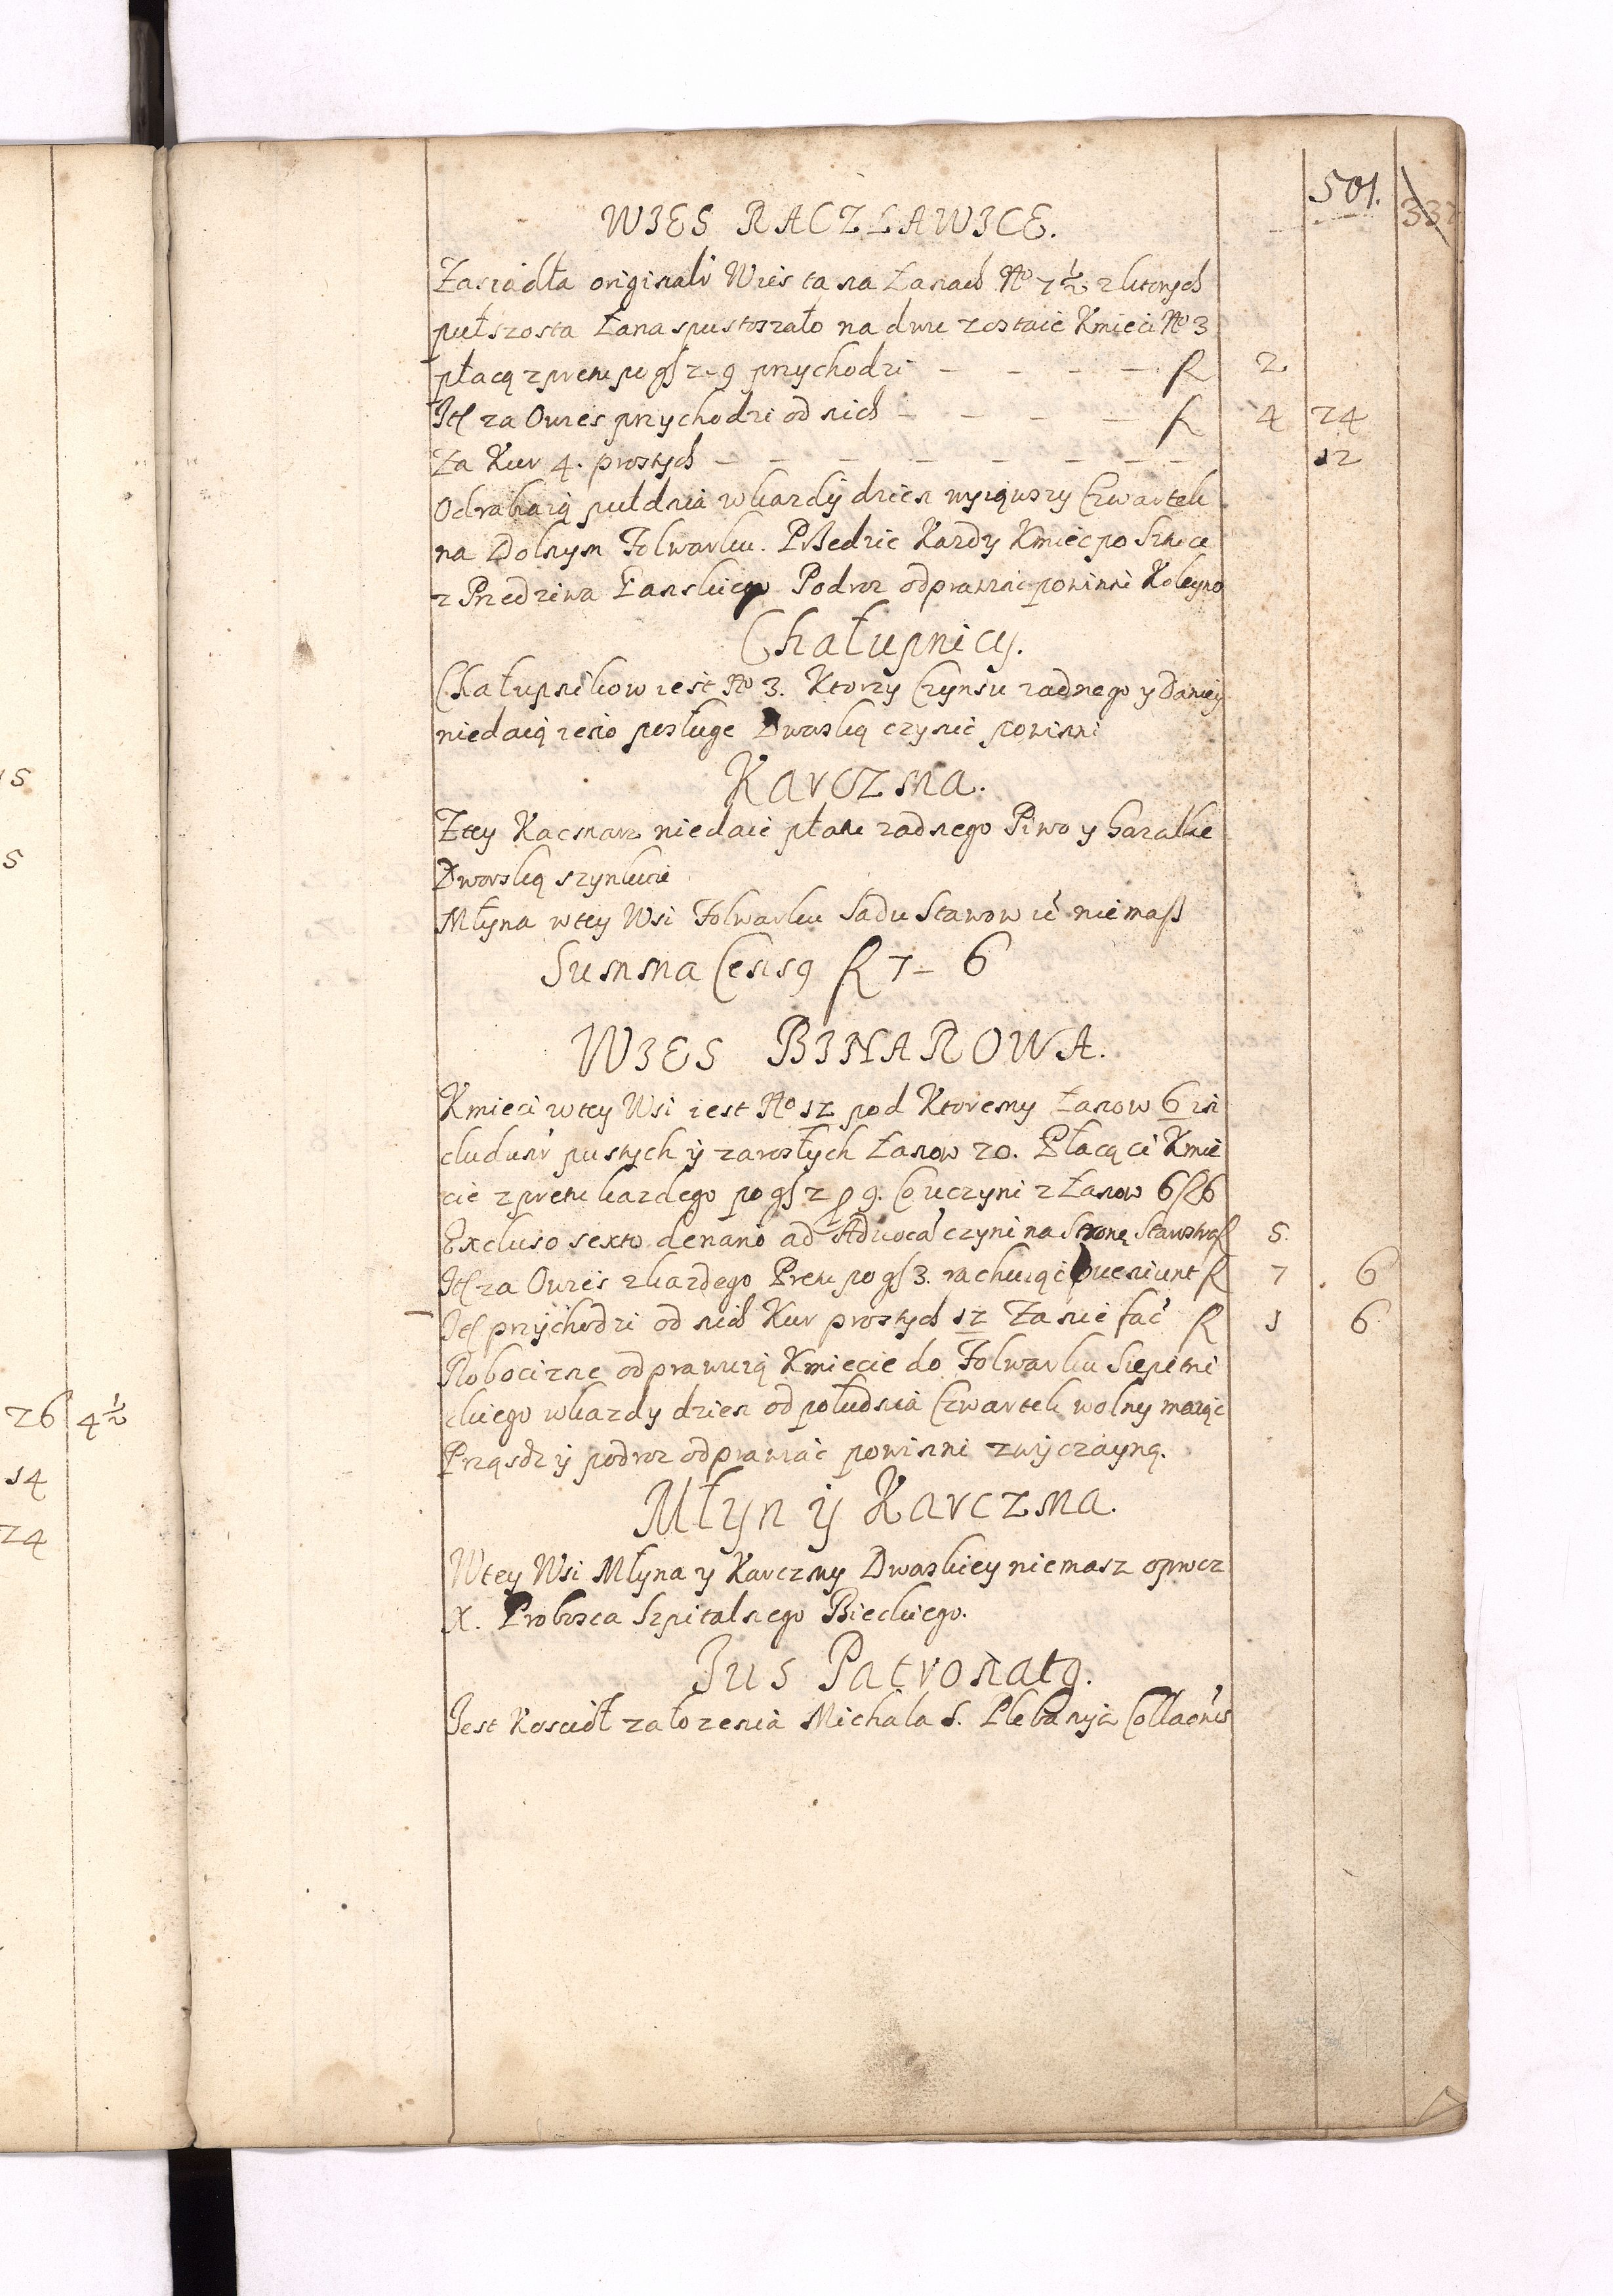 501.
337
WIES RACZŁAWICE.
Zasiadła originalr Wies ta na Łanach No 7½ z ktorych
pułszosta Łana spustoszało na dwu zostaie Kmieci No 3
płacą z pretu po gſ 2 – 9 przychodzi – – – – – f 2
Itſ za Owies przychodzi od nich – – – – f 4 24
Za Kur 4. prostych – – – – – – – – 12
Odrabiaią puł dnia w kazdÿ dzien wyiąwszy Czwartek
na Dolnym Folwarku. Przedzie Kazdy Kmiec po Sztuce
z Przedziwa Pańskiego Podroz odprawiac powinni Koleyno
Chałupnicy.
Chałupnikow iest No 3. Ktorzy Czynszu zadnego y Daniey
niedaią ieno posługe Dworską czynic powinni
Karczma.
Ztey Kacmarz niedaie płatu zadnego Piwo y Gorzałke
Dworską szynkuie
Młyna w tey Wsi Folwarku Sadu Stawow ic niemaſz
Summa Cens9 f 7 – 6
WIES BINAROWA.
Kmieci w tey Wsi iest No 12 pod Ktoremy Łanow 6 in
cludunr pustych ÿ zarosłych Łanow 20. Płacą ci Kmie
cie z pretu kazdego po gſ 2 ρ 9. Co uczyni z Łanow 6 f 6
Excluso sexto denario ad Advoca czyni na Stronę Starostwa f 5
Itſ za Owies z kazdego Pretu po gſ 3. rachuiąc pueniunt f 7 6
Itſ przÿchodzi od nich Kur prostych 12 Za nie fac f 1 6
Robocizne odprawuią Kmiecie do Folwarku Siepietni
ckiego w kazdy dzien od południa Czwartek wolny maiąc
Prząsdz ÿ podroz odprawiac powinni zwÿczayną.
Młyn ÿ Karczma.
W tey Wsi Młyna y Karczmy Dworskiey niemasz oprocz
X. Probosca Szpitalnego Bieckiego.
Jus Patronat9.
Jest Kosciół załozenia Michała S. Plebanÿa Collaónis
5
5
26 4½
14
24